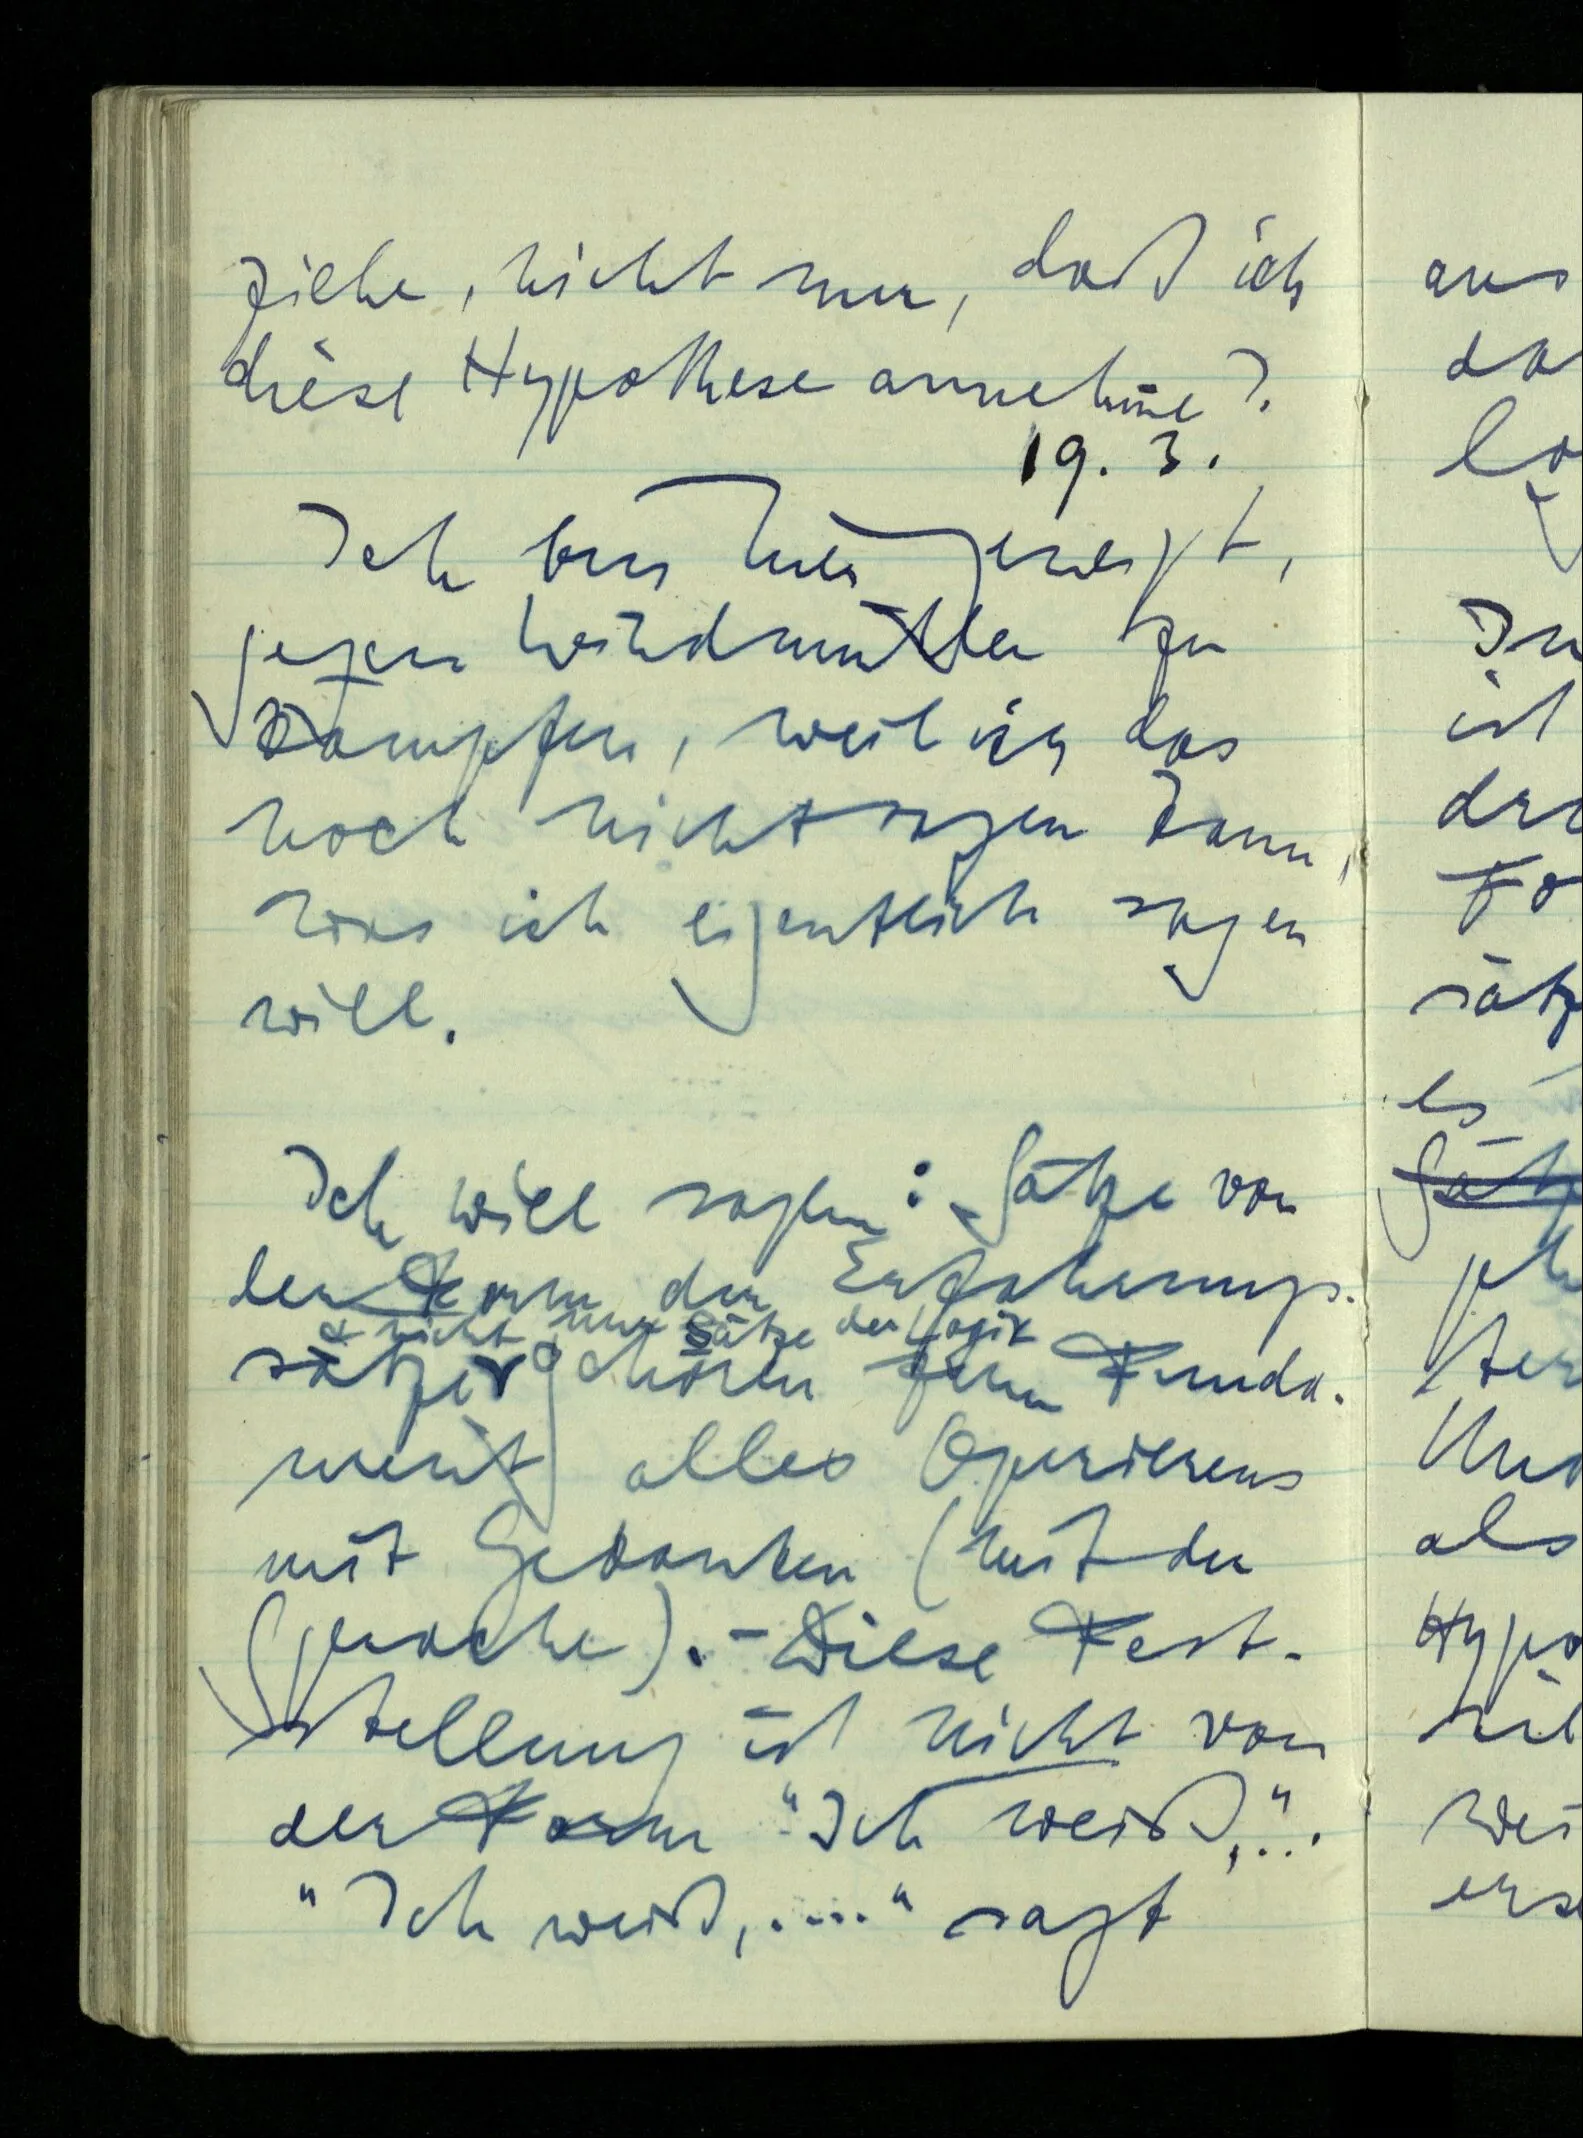 ziehe, nicht nur, daß ich
diese Hypothese annehme?
19. 3.
Ich bin hier geneigt,
gegen Windmühlen zu
kämpfen, weil ich das
noch nicht sagen kann,
was ich eigentlich sagen
will.
Ich will sagen: Sätze von
der Form der Erfahrungs-
& nicht nur Sätze der Logik
sätze gehören zum Funda-
ment alles Operierens
mit Gedanken (mit der
Sprache). – Diese Fest-
stellung ist nicht von
der Form "Ich weiß, ..."
"Ich weiß, ...." sagt
aus
da
In
ist
sätz
es
Sätz
Und
als
Hypo